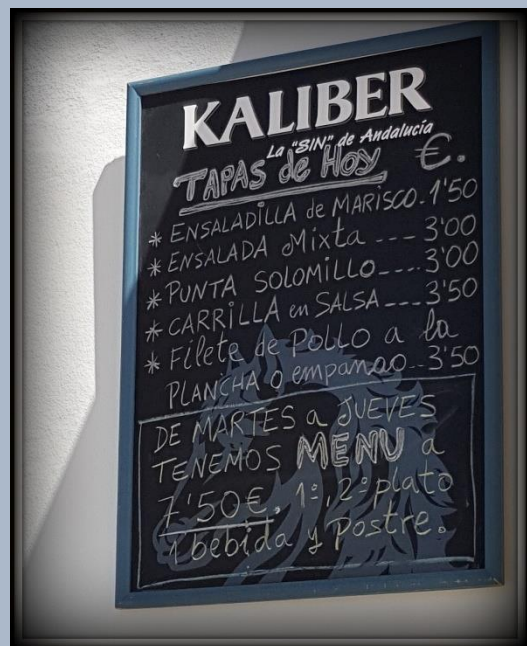 KALIBER
La "SIN" de Andalucía
TAPAS de Hoy €.
* ENSALADILLA de MARISCO-1'50
* ENSALADA Mixta --- 3'00
* PUNTA SOLOMILLO---- 3'00
* CARRILLA en SALSA --- 3'50
* Filete de POLLO a la
PLANCHA o empanao -- 3'50
DE MARTES a JUEVES
TENEMOS MENU a
7'50€. 1º, 2º plato
1 bebida y Postre.